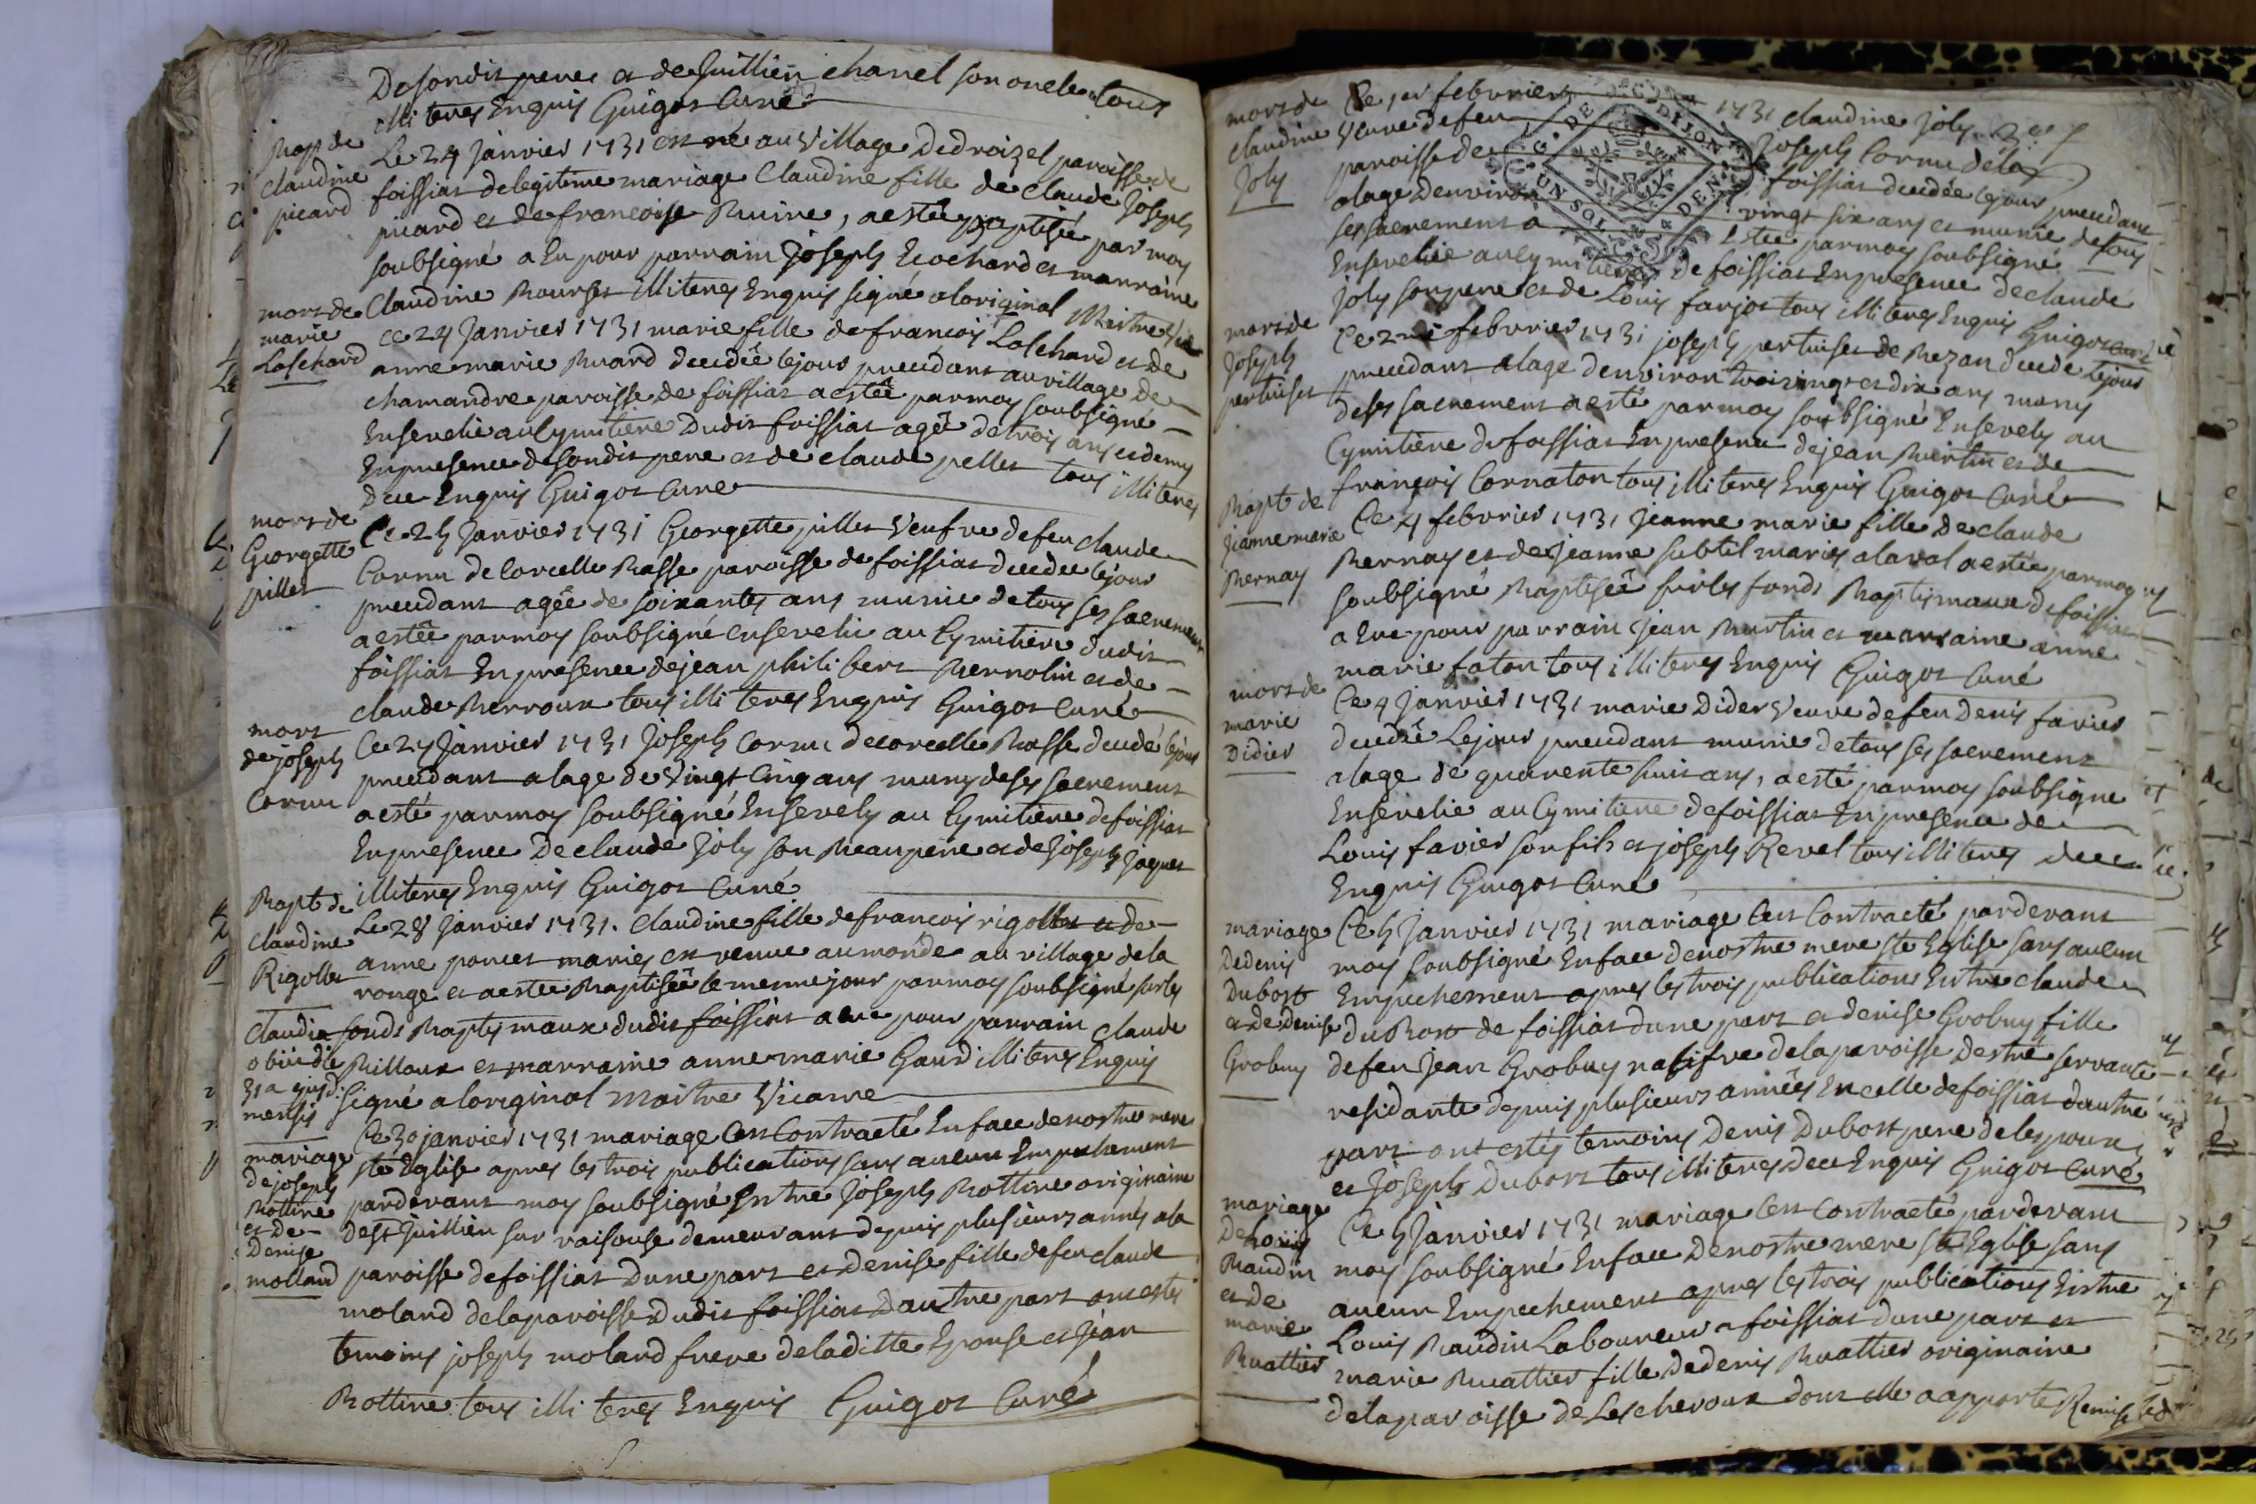 De sondit pere et de Guillien chanel son oncle tous
illiteres Enquis Guigot Curé
Bapt de
Claudine
picard
Le 24 Janvier 1731 est né au Village De droizel paroisse de
foissiat de legitime mariage Claudine fille de Claude Joseph
picard et de francoise Buire, a estée baptisée par moy
soubsigné a Eu pour parrain Joseph Ecochard et marraine
Claudine Bourset illiteres Enquis signé a loriginal Maitre Vic
mort de
marie
Laschard
ce 24 Janvier 1731 marie fille de francois Laschard et de
anne marie Buard decedée le jour precedant au village de
chamandre paroisse de foissiat a estée par moy soubsigné
Ensevelie au Cymitiere Dudit foissiat agée de trois ans et demy
En presence de sondit pere et de claude pellet tous illiteres
dece Enquis Guigot Curé
mort de
Georgette
pillet
Ce 25 Janvier 1731 Georgette pillet Veufve de feu claude
Cornu de Corcelle Basse paroisse de foissiat decedee le jour
precedant agée de soixantes ans munie de tous ses sacrement
a estée par moy soubsigné ensevelie au Cymitiere dudit
foissiat En presence de jean philibert Bernolin et de
claude Berroux tous illiteres Enquis Guigot Curé
mort
de joseph
Cornu
Ce 27 Janvier 1731 Joseph Cornu de corcelle Basse decedé le jour
precedant a lage de Vingt Cinq ans muny de ses sacrement
a esté par moy soubsigné Ensevely au Cymitiere de foissiat
En presence De claude Joly son Beaupere et de Joseph jaquet
illiteres Enquis Guigot Curé
Bapt de
Claudine
Rigollet
Le 28 Janvier 1731. Claudine fille de francois rigollet et de
anne poncet mariés est venue au monde au village de la
ronge et a estée Baptisée le meme jour par moy soubsigné sur les
fonds Baptismaux dudit foissiat a eue pour parrain Claude
Billoux et marraine anne marie Gaud illiteres Enquis
signé a loriginal Maitre Vicaire
Claudia
obiit die
31a ejusd.
mensis
mariage
de joseph
Bottine
et de
Denise
molland
Ce 30 janvier 1731 mariage Cest Contracté En face de nostre mere
ste Eglise apres les trois publications sans aucun Empechement
pardevant moy soubsigné Entre Joseph Bottine originaire
De St Jullien sur raisouse demeurant depuis plusieurs annés a la
paroisse de foissiat D une part et Denise fille de feu claude
moland de la paroisse Dudit foissiat Dautre part ont estés
temoins joseph moland frere de laditte Epouse et Jean
Bottine tous illiteres Enquis Guigot Curé
mort de
Claudine
Joly
Ce 1er febvrier 1731 claudine joly
Veuve de feu Joseph Cornu de la
paroisse de foissiat decedée le jour precedant
a lage Denviron vingt six ans et munie de tous
ses sacrement a Estée par moy soubsigné
Ensevelie au Cymitiere de foissiat En presence de claude
joly son pere et de Louis farjot tous illiteres Enquis Guigot Curé
mort de
Joseph
pertuiset
Ce 2 febvrier 1731 joseph pertuiset de Bezan decede le jour
precedant a lage denviron trois vingt et dix ans muny
de ses sacrement a esté par moy soubsigné Ensevely au
Cymitiere de foissiat En presence de jean Burtin et de
françois Cornaton tous illiteres Enquis Guigot Curé
Bapt de
Jeanne marie
Bernay
Ce 4 febvrier 1731 Jeanne marie fille de claude
Bernay et de Jeanne subtil mariés a laval a estée par moy
soubsigné Baptisée sur les fonds Baptismaux de foissiat
a Eue pour parrain Jean Burtin et marraine anne
marie faton tous illiteres Enquis Guigot Curé
mort de
marie
Didier
Ce 4 janvier 1731 marie Dider Veuve de feu Denis favier
decedée Le jour precedant munie de tous ses sacrement
a lage de quarente huit ans, a esté par moy soubsigne
Ensevelie au Cymitiere de foissiat En presence de
Louis favier son fils et joseph Revel tous illiteres dece
Enquis Guigot Curé
mariage
De denis
Dubost
et de denise
Grobuy
Ce 5 Janvier 1731 mariage Cest Contracté pardevant
moy soubsigné En face de nostre mere ste Eglise sans aucun
Empechement apres les trois publications Entre claude
Du Bost de foissiat dune part et denise Grobuy fille
de feu Jean Grobuy natifve de la paroisse Destre servante
residante depuis plusieurs années En celle de foissiat dautre
part ont estés temoins Denis Dubost pere de lespoux
et Joseph Dubost tous illiteres dece Enquis Guigot Curé
mariage
De Louis
Baudin
et de
marie
Buattier
Ce 5 Janvier 1731 mariage Cest Contracté pardevant
moy soubsigné En face De nostre mere ste Eglise sans
aucun Empechement apres les trois publications Entre
Louis Baudin Laboureur a foissiat dune part et
marie Buattier fille De denis Buattier originaire
de la paroisse de Lescheroux dont elle a apporté Remise